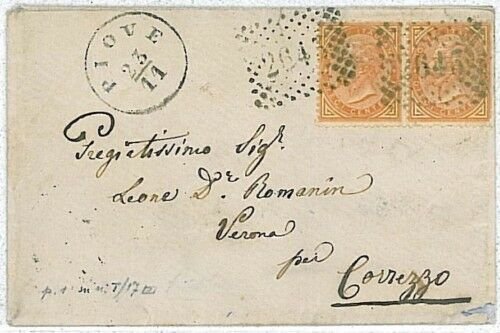 PIOVE
23
11
264
Pregiatissimo Sigr
Leone Dr. Romanin
Verona
per
Correzzo